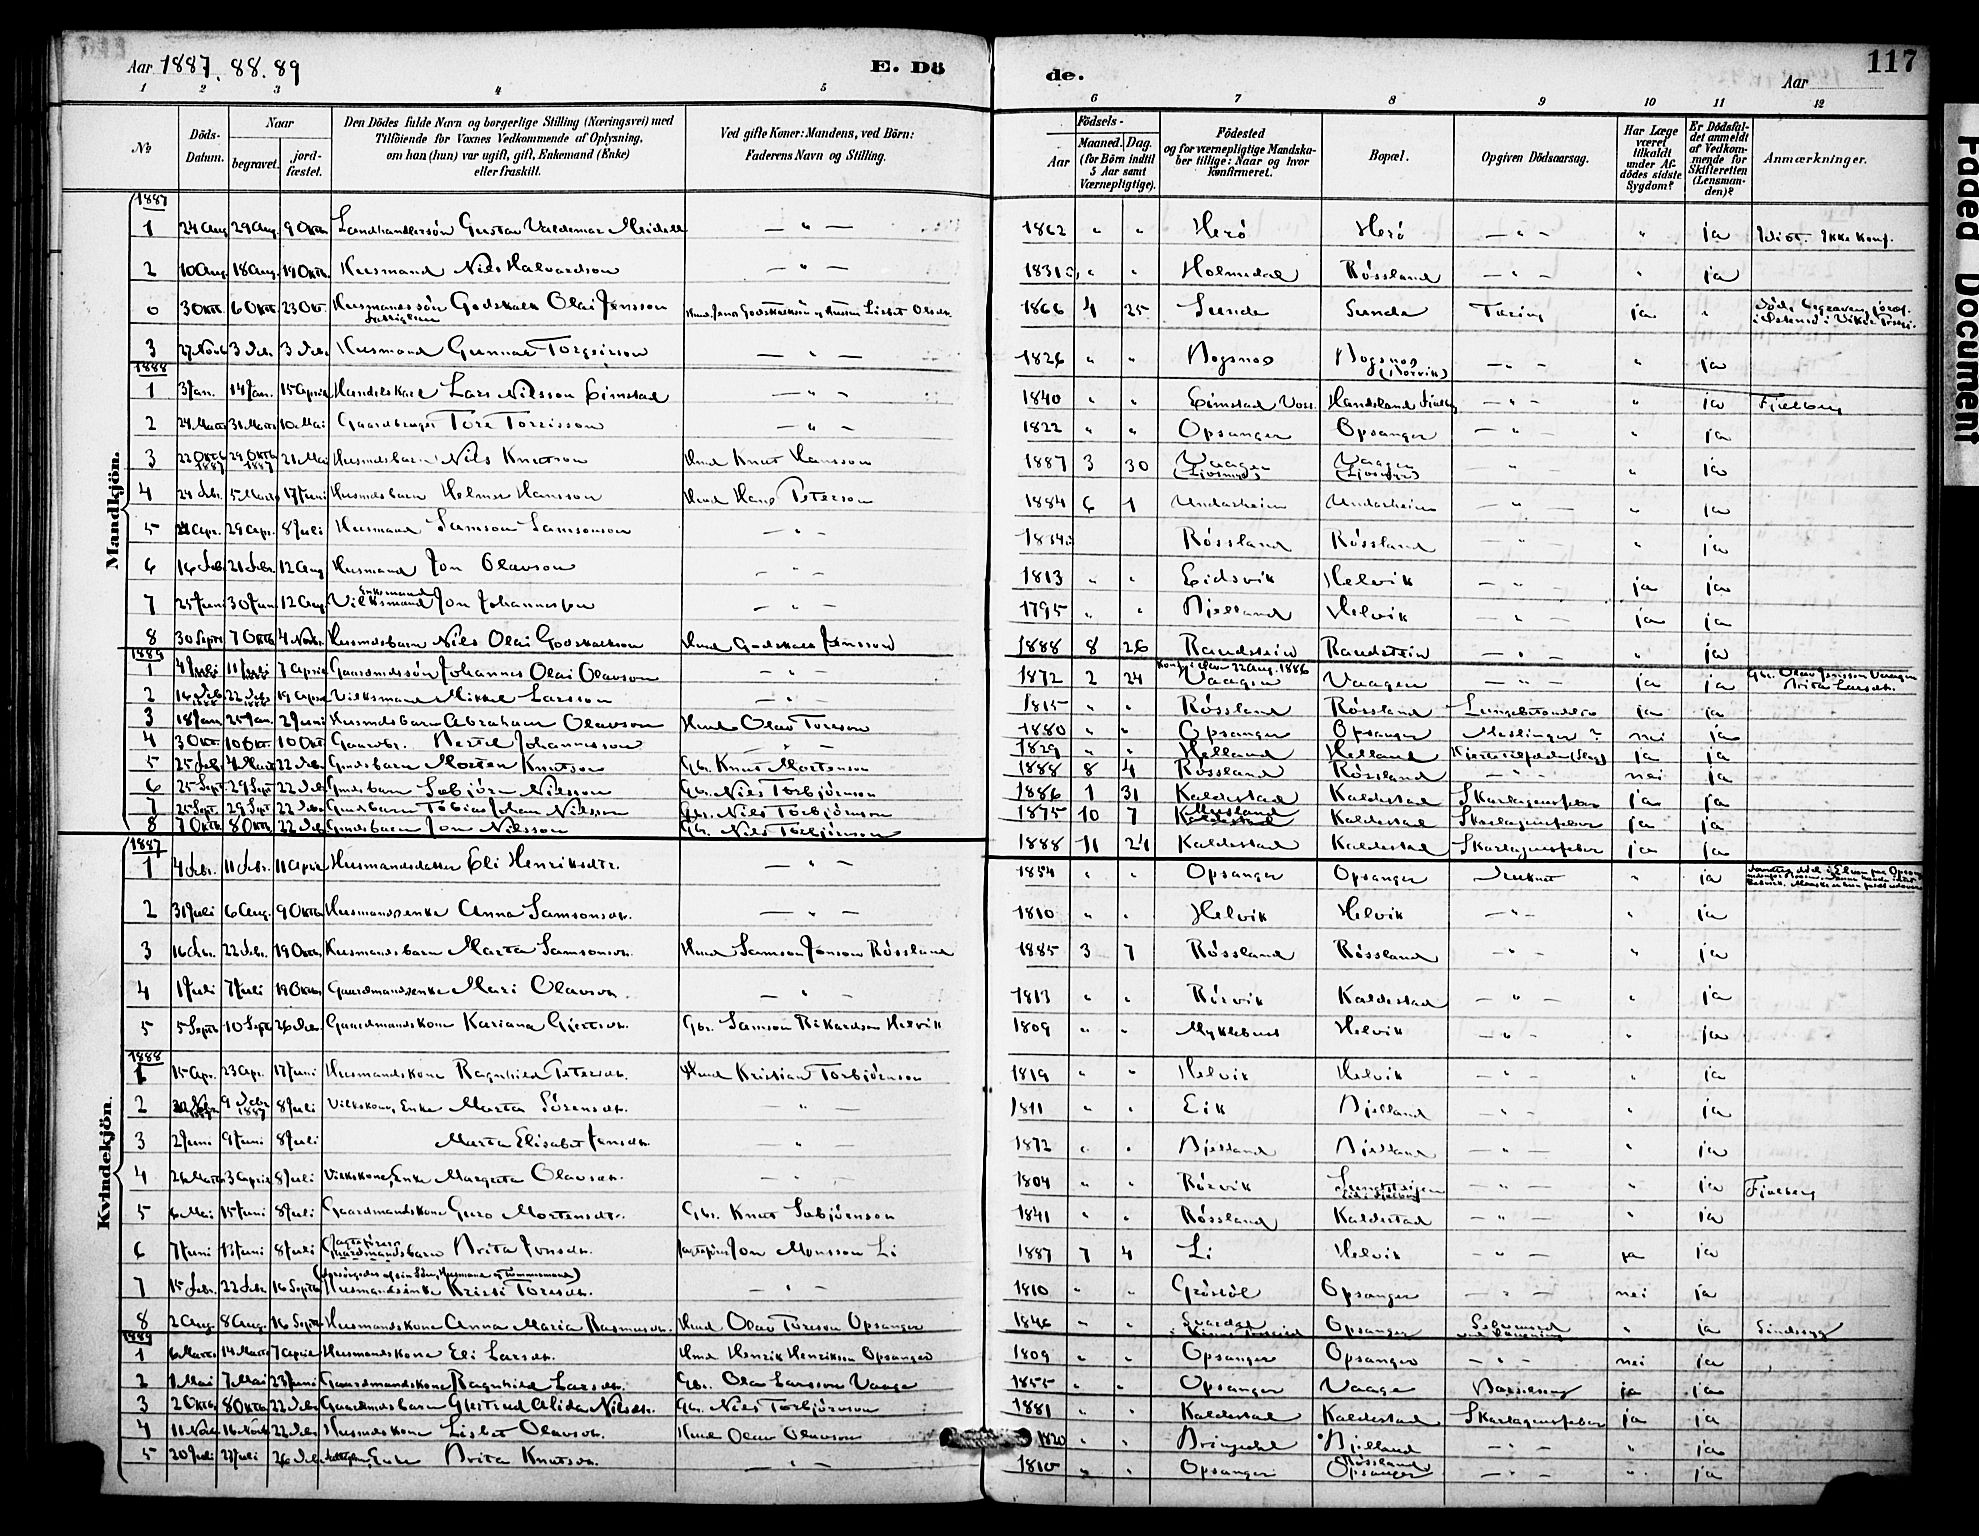 Aar 1887. 88. 89
E. Dö
de.
117
Aar
1 2 3 4 5
6 7 8 9 10 11 12
№
Döds-Datum.
Naar
begravet.
jord-fæstet.
Den Dödes fulde Navn og borgerlige Stilling (Næringsvei) med
Tilföiende for Voxnes Vedkommende af Oplysning,
om han (hun) var ugift, gift, Enkemand (Enke)
eller fraskilt.
Ved gifte Koner: Mandens, ved Börn:
Faderens Navn og Stilling.
Födsels-
Aar
Maaned. Dag.
(for Börn indtil
5 Aar samt
Værnepligtige).
Födested
og for værnepligtige Mandska-
ber tillige: Naar og hvor
konfirmeret.
Bopæl.
Opgiven Dödsaarsag.
Har Læge
været
tilkaldt
under Af-
dödes sidste
Sygdom?
Er Dödsfal-
det anmeldt
af Vedkom-
mende for
Skifteretten
(Lensman-
den)?
Anmærkninger.
Mandkjön.
1887
1 24 Aug 29 Aug. 9 Oktb Landhandlersön Gustav Valdemar Meidell — " — 1862 " " Herö Herö — " — " ja Idiot. Ikke konf.
2 10 Aug. 18 Aug. 19 Oktb. Husmand Nils Halvardson — " — 1831 " " Holmedal Rössland — " — " ja
0 3 Oktb. 6 Oktb. 23 Okt. Husmandssön Godskalk Olai Jensson 1866 4 25 Sunde Sunde Tæring ja "
3 27 Novb 3 Deb. 3 Deb. Husmand Gunnar Torgeirson — " — 1826 " " Bogsnes Bogsnes (Norvik) — " — " ja
1888
1 3 Jan. 14 Jan. 15 April Handelskarl Lars Nilsson Gimstad — " — 1840 " " Gimstad Voss. Handsland Fjelberg — " — " ja Fjelberg
2 24 Marts 31 Marts 10 Mai Gaardbruger Tore Torrisson — " — 1822 " " Opsanger Opsanger — " — " ja
3 22 Oktb 1887 29 Oktb 1887 21 Mai Husmdsbarn Nils Knutson Hmd Knut Hansson 1887 3 30 Vaagen Vaagen " " ja
4 24 Febr. 5 Marts 17 Juni Husmdsbarn Helmer Hansson Hmd Hans Peterson 1884 6 1 Undarheim Undarheim — " — " ja
5 Apr. 29 Apr. 8 Juli Husmand Samson Samsonson — " — 1834 Rössland Rössland — " — " ja
6 14 Feb. 21 Febr. 12 Aug Husmand Jon Olavson — " — 1813 " " Eidsvik Helvik — " — ja ja
7 25 Juni 30 Juni 12 Aug. Enkemand Vilksmand Jon Johannesson — " — 1795 " " Bjelland Helvik — " — ja ja
8 30 Septb 7 Oktb 4 Novb. Husmdsbarn Nils Olai Godskalkson Hmd Godskalk Jensson 1888 8 26 Randstein Randstein — " — " ja
1889
1 4 Juli 11 Juli 7 April Gaardmdssön Johannes Olai Olavson — " — 1872 2 24 Konf i Herö 22 Aug. 1886 Vaagen Vaagen — " — ja ja Gbr. Olav Jensson Vaagen Brita Larsdtr.
2 14 Feb 22 Feb 19 April Vilksmand Mikkel Larsson — " — 1815 " " Rössland Rössland Lungebetændelse ja ja
3 18 Jan 25 Jan. 2 Juni Husmdsbarn Abraham Olavson Hmd Olav Toreson 1880 " " Opsanger Opsanger Meslinger ? nei ja
4 3 Okt. 10 Okt. 10 Okt Gaardbr. Bertel Johannesson — " — 1829 " " Helland Helland Hjerte (Slag) ja ja
5 25 Feb. 4 Marts 22 Deb. Gmdsbarn Morten Knutson Gbr. Knut Mortenson 1888 8 4 Rössland Rössland — " — nei ja
6 25 Sept 29 Sept 22 Deb. Gmdsbarn Sæbjörn Nilsson Gbr. Nils Torbjörnson 1886 1 31 Kaldestad Kaldestad Skarlagensfeber ja ja
7 25 Sept. 29 Sept. 22 Deb. Gmdsbarn Tobias Johan Nilsson Gbr. Nils Torbjörnson 1875 10 7 Kaldestad Skarlagensfeber ja ja
8 7 Oktb 8 Oktb 22 Deb Gmdsbarn Jon Nilsson Gbr. Nils Torbjörnson 1888 11 24 Kaldestad Kaldestad Skarlagensfeber ja ja
Kvindekjön.
1887
1 4 Febr. 11 Febr. 11 April Husmandsdatter Eli Henriksdtr. — " — 1854 " " Opsanger Opsanger Druknet " ja
2 31 Juli 6 Aug. 9 Oktb Husmandsenke Anna Samsonsdtr. — " — 1810 " " Helvik Helvik — " — " ja
3 16 Febr. 22 Febr. 19 Oktb. Husmandsbarn Marta Samsonsdtr. Hmd Samson Jonson Rössland 1885 3 7 Rössland Rössland — " — " ja
4 1 Juli 7 Juli 19 Oktb. Gaardmandsenke Mari Olavsdtr. — " — 1813 " " Rörvik Kaldestad — " — " ja
5 5 Septb 10 Septb 26 Deb. Gaardmandskone Kariana Gjertsdtr. Gbr. Samson Rikardson Helvik 1809 " " Myklebust Helvik — " — " ja
1888
1 15 Apr. 23 Apr. 17 Juni Husmandskone Ragnhild Petersdtr. Hmd Kristian Torbjörnson 1819 " " Helvik Helvik — " — " ja
2 9 Debr 1887 8 Juli Vilkskone, Enke Marta Sörensdtr. — " — 1811 " " Eik Bjelland — " — " ja
3 2 Juni 9 Juni 8 Juli Marta Elisabet Jensdtr. — " — 1872 " " Bjelland Bjelland — " — " ja
4 26 Marts 3 April 8 Juli Vilkskone, Enke Margreta Olavsdtr. — " — 1804 " " Rörvik — " — " ja Fjelberg
5 6 Mai 15 Juni 8 Juli Gaardmandskone Guro Mortensdtr. Gbr. Knut Sæbjörnson 1841 " " Rössland Kaldestad — " — " ja
6 7 Juni 13 Juni 8 Juli Brita Jonsdtr. Jon Monsson Li 1887 7 4 Li Helvik — " — ja ja
7 15 Febr. 22 Febr. 16 Septb Husmandsenke Kristi Toresdtr. — " — 1810 " " Opsanger — " — nei ja
8 2 Aug. 8 Aug. 16 Septb Husmandskone Anna Maria Rasmusdtr. Hmd Olav Toresson Opsanger 1846 Opsanger Selvmord " ja Sindssyg
1889
1 6 Marts 14 Marts 7 April Husmandskone Eli Larsdtr. Hmd Henrik Henrikson Opsanger 1809 " " Opsanger Opsanger — " — nei ja
2 1 Mai 7 Mai 23 Juni Gaardmandskone Ragnhild Larsdtr. Gbr. Ola Larsson Vaage 1855 " " Opsanger Vaage Barselseng ja ja
3 2 Oktb. 8 Oktb. 22 Deb. Gaardmdsbarn Gjertrud Alida Nilsdtr. Gbr. Nils Torbjörnson 1881 " " Kaldestad Kaldestad Skarlagensfeber ja ja
4 11 Novb 16 Novb 22 Debr Husmdskone Lisbet Olavsdtr. Hmd Olav Olavson 1820 " " Bringedal Bjelland — " — " ja
5 20 Juli 27 Juli 26 Deb. Enke Brita Knutsdtr. — " — 1810 " " Opsanger Rössland Opsanger — " — " ja
Faded Document